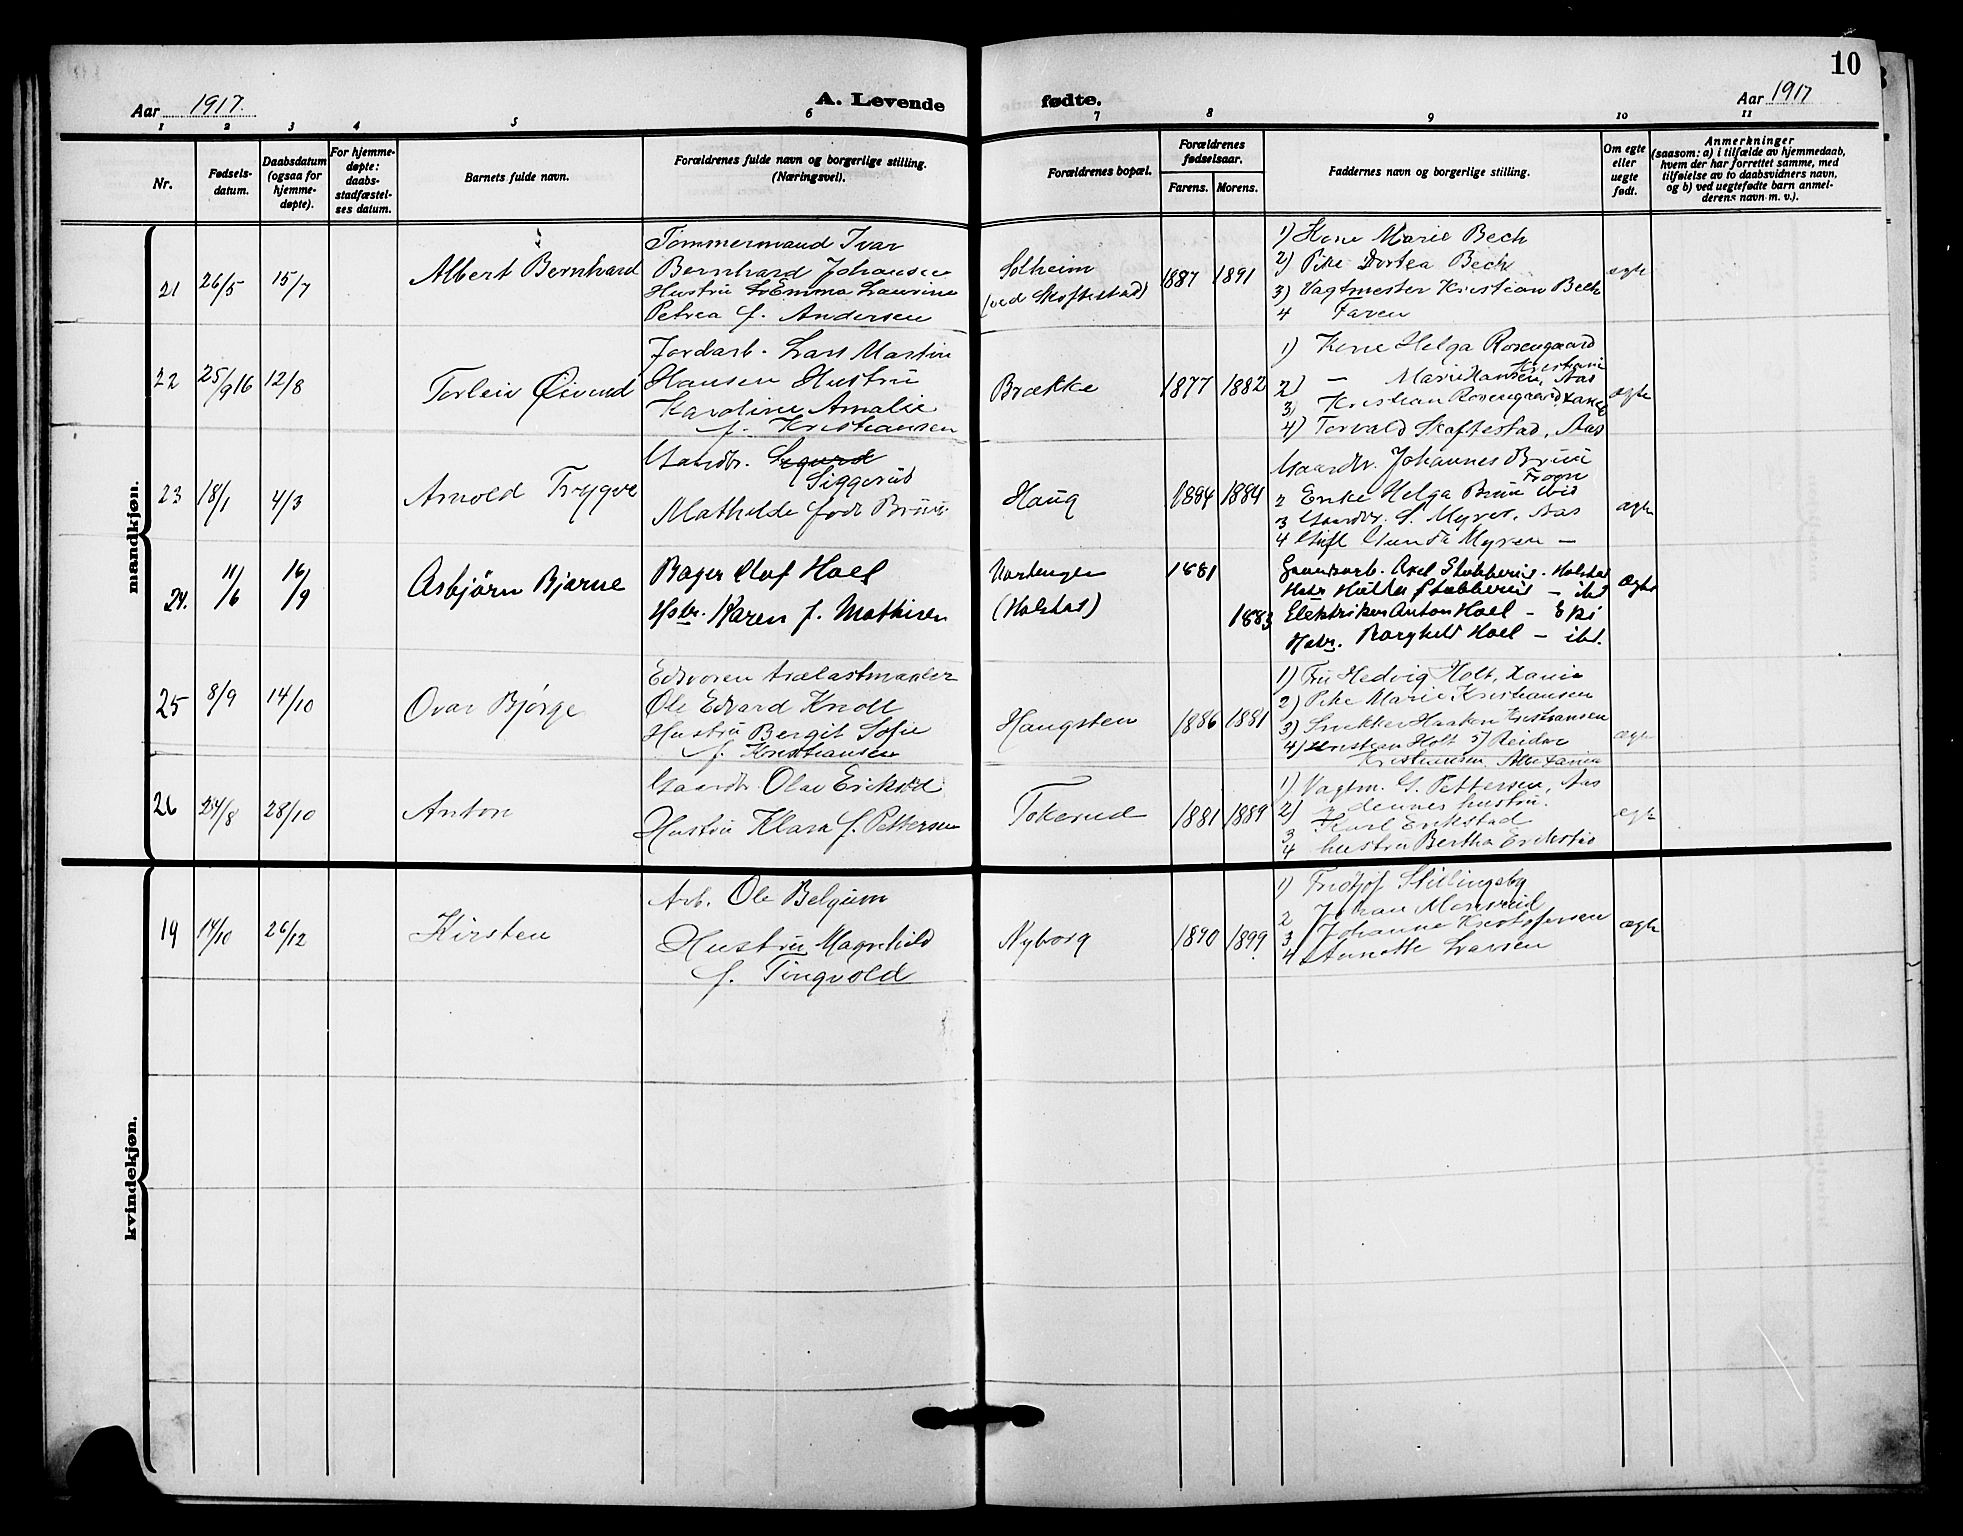 10
Aar 1917. A. Levende fødte. Aar 1917
1 2 3 4 5 6 7 8 9 10 11
Nr. Fødsels-datum. Daabsdatum (ogsaa for hjemme-døpte). For hjemme-døpte: daabs-stadfæstel-ses datum. Barnets fulde navn. Forældrenes fulde navn og borgerlige stilling. (Næringsvei). Forældrenes bopæl. Forældrenes fødselsaar. Farens. Morens. Faddernes navn og borgerlige stilling. Om egte eller uegte født. Anmerkninger (saasom: a) i tilfælde av hjemmedaab, hvem der har forrettet samme, med tilføielse av to daabsvidners navn, og b) ved uegtefødte barn anmel-derens navn m. v.).
mandkjøn.
21 26/5 15/7 Albert Bernhard
Tømmermand Ivar
Bernhard Johansen
Hustru Emma Laurine
Petrea f. Andersen
Solheim
(ved Skoftestad)
1887 1891
1) Kone Marie Bech
2) Pike Dortea Bech
3) Vagtmester Kristian Bech
4 Faren
egte
22 25/9 16 12/8 Torleiv Øivind
Jordarb. Lars Martin
Hansen Hustru
Karoline Amalie
f. Kristiansen
Brække
1877 1882
1) Kone Helga Rosengaard
Kristiania
2) — Marie Hansen, Aas
3) Kristian Rosengaard
4) Torvald Skaftestad, Aas
egte
23 18/1 4/3 Arnold Trygve
Gaardbr. Sigurd
Siggerud
Mathilde født Bruu
Haug
1884 1884
Gaardbr. Johannes Bruu
Frogn
2 Enke Helga Bruu ibid
3 Gaardbr. S. Myrer, Aas
4 Gift Gunda Myren —
egte
24. 11/6 16/9 Asbjørn Bjarne
Bager Olaf Hoel
Hstr. Karen f. Mathisen
(Holstad)
1881
1883
Axel Stubberud - Holstad
Hstr. Stubberud — ibd
Elektriker Anton Hoel — Ski
Hstr. Borghild Hoel — ibd.
Ægte
25 8/9 14/10 Ovar Bjørge
Edsvoren trælastmaaler
Ole Edvard Knoll
Hustru Bergit Sofie
f. Kristiansen
Haugsten
1886 1881
1) Fru Hedvig Holt, Xania
2) Pike Marie Kristiansen
3) Snekker Haakon Kristiansen
4) Kristian Holt 5) Reidar
Kristiansen, Alle Xania
egte
26 24/8 28/10 Anton
Gaardbr. Olav Erikstad
Hustru Klara f. Pettersen
Tokerud
1881 1889
1) Vagtm. G. Pettersen, Aas
2) dennes hustru.
3 Karl Erikstad
4 hustru Bertha Erikstad
egte
kvindekjøn.
19 14/10 26/12 Kirsten
Arb. Ole Belgum
Hustru Magnhild
f. Tingvold
Nyborg
1890 1899
1) Fridtjof Stillingsby
2 Johan Monsrud
3 Johanne Kristofersen
4 Annette Larsen
egte